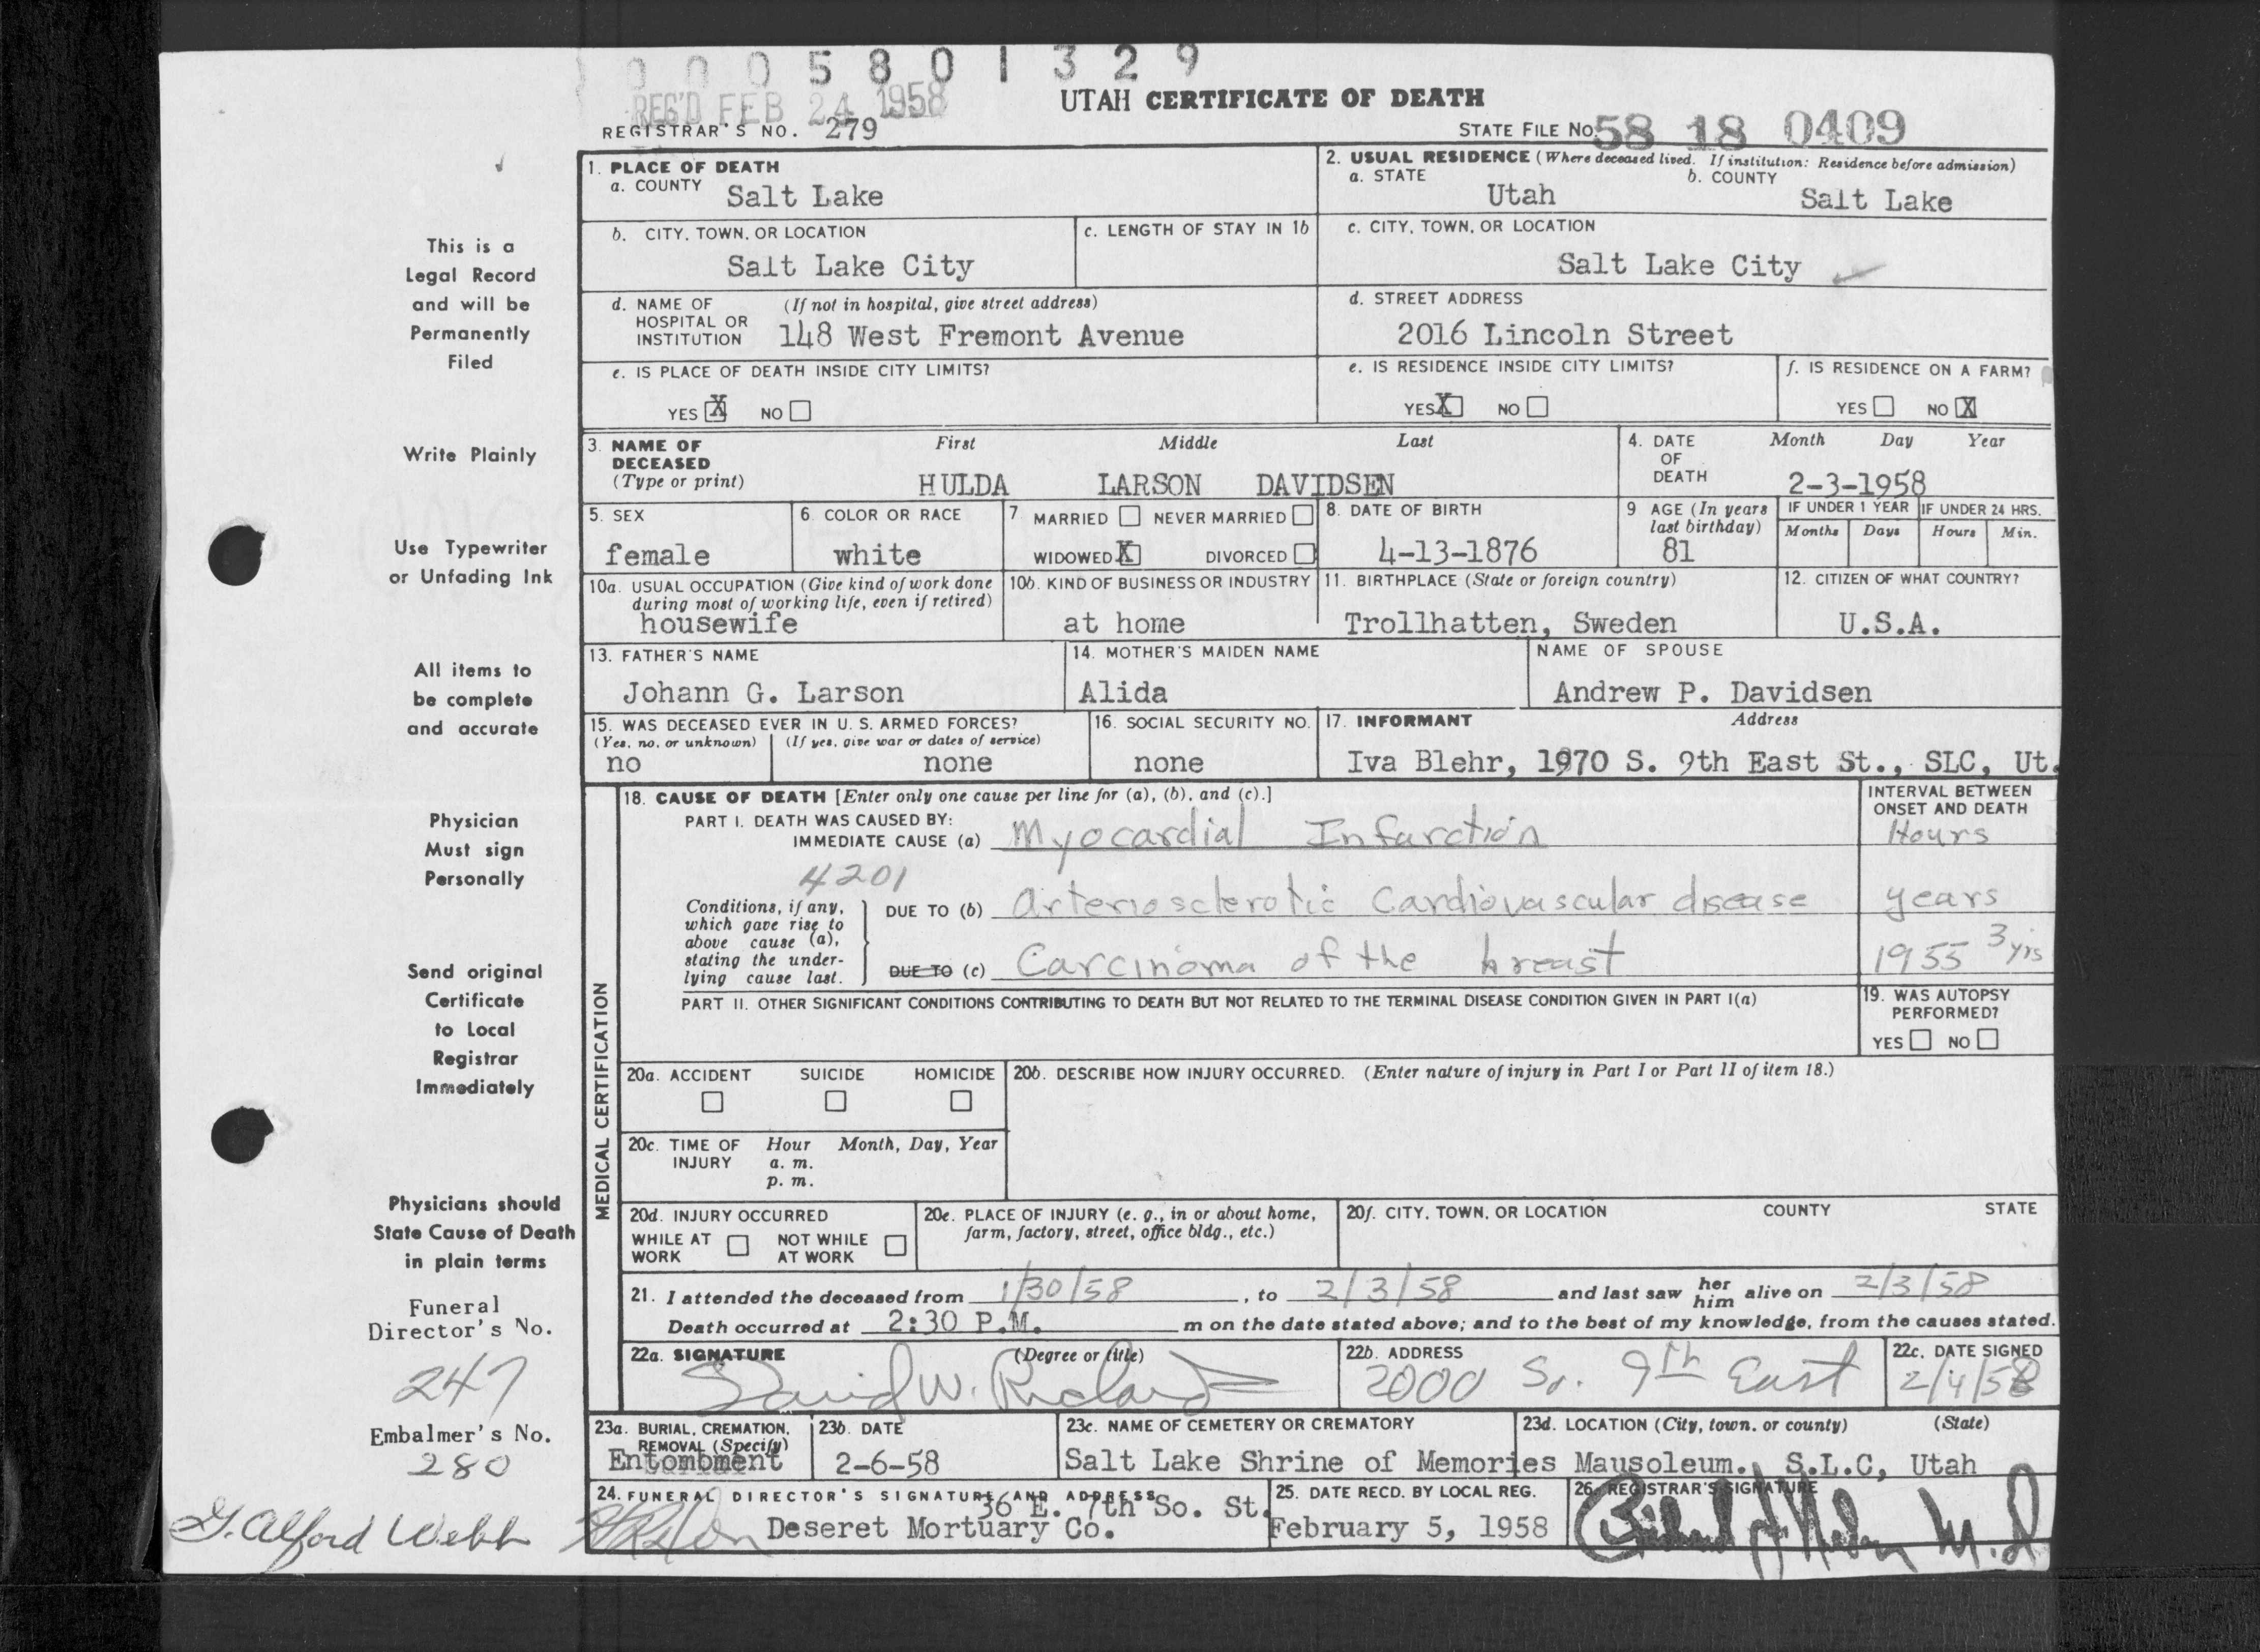 0 0 0 5 8 0 1 3 2 9
REG'D FEB 24 1958
UTAH CERTIFICATE OF DEATH
REGISTRAR'S NO. 279
STATE FILE NO. 58 18 0409
1. PLACE OF DEATH
a. COUNTY Salt Lake
2. USUAL RESIDENCE (Where deceased lived. If institution: Residence before admission)
a. STATE Utah b. COUNTY Salt Lake
b. CITY, TOWN, OR LOCATION Salt Lake City
c. LENGTH OF STAY IN 1b
c. CITY, TOWN, OR LOCATION Salt Lake City
d. NAME OF HOSPITAL OR INSTITUTION (If not in hospital, give street address)
148 West Fremont Avenue
d. STREET ADDRESS
2016 Lincoln Street
e. IS PLACE OF DEATH INSIDE CITY LIMITS?
YES X NO
e. IS RESIDENCE INSIDE CITY LIMITS?
YES X NO
f. IS RESIDENCE ON A FARM?
YES NO X
3. NAME OF DECEASED (Type or print)
First Middle Last
HULDA LARSON DAVIDSEN
4. DATE OF DEATH Month Day Year
2-3-1958
5. SEX
female
6. COLOR OR RACE
white
7 MARRIED NEVER MARRIED
WIDOWED X DIVORCED
8. DATE OF BIRTH
4-13-1876
9 AGE (In years last birthday)
81
IF UNDER 1 YEAR IF UNDER 24 HRS.
Months Days Hours Min.
10a. USUAL OCCUPATION (Give kind of work done during most of working life, even if retired)
housewife
10b. KIND OF BUSINESS OR INDUSTRY
at home
11. BIRTHPLACE (State or foreign country)
Trollhatten, Sweden
12. CITIZEN OF WHAT COUNTRY?
U.S.A.
13. FATHER'S NAME
Johann G. Larson
14. MOTHER'S MAIDEN NAME
Alida
NAME OF SPOUSE
Andrew P. Davidsen
15. WAS DECEASED EVER IN U. S. ARMED FORCES?
(Yes, no, or unknown) (If yes, give war or dates of service)
no none
16. SOCIAL SECURITY NO.
none
17. INFORMANT Address
Iva Blehr, 1970 S. 9th East St., SLC, Ut.
MEDICAL CERTIFICATION
18. CAUSE OF DEATH [Enter only one cause per line for (a), (b), and (c).]
INTERVAL BETWEEN ONSET AND DEATH
PART I. DEATH WAS CAUSED BY:
IMMEDIATE CAUSE (a) Myocardial Infarction Hours
4201
Conditions, if any, which gave rise to above cause (a), stating the underlying cause last.
DUE TO (b) Arteriosclerotic Cardiovascular disease years
DUE TO (c) Carcinoma of the breast 1955 3 yrs
PART II. OTHER SIGNIFICANT CONDITIONS CONTRIBUTING TO DEATH BUT NOT RELATED TO THE TERMINAL DISEASE CONDITION GIVEN IN PART I(a)
19. WAS AUTOPSY PERFORMED?
YES NO
20a. ACCIDENT SUICIDE HOMICIDE
20b. DESCRIBE HOW INJURY OCCURRED. (Enter nature of injury in Part I or Part II of item 18.)
20c. TIME OF INJURY Hour Month, Day, Year
a. m.
p. m.
20d. INJURY OCCURRED
WHILE AT WORK NOT WHILE AT WORK
20e. PLACE OF INJURY (e. g., in or about home, farm, factory, street, office bldg., etc.)
20f. CITY, TOWN, OR LOCATION COUNTY STATE
21. I attended the deceased from 1/30/58, to 2/3/58 and last saw her him alive on 2/3/58
Death occurred at 2:30 P.M. m on the date stated above; and to the best of my knowledge, from the causes stated.
22a. SIGNATURE (Degree or title)
David W.
22b. ADDRESS
2000 So. 9th East
22c. DATE SIGNED
2/4/58
23a. BURIAL, CREMATION, REMOVAL (Specify)
Entombment
23b. DATE
2-6-58
23c. NAME OF CEMETERY OR CREMATORY
23d. LOCATION (City, town, or county) (State)
Salt Lake Shrine of Memories Mausoleum. S.L.C, Utah
24. FUNERAL DIRECTOR'S SIGNATURE AND ADDRESS
36 E. 7th So. St.
Deseret Mortuary Co.
25. DATE RECD. BY LOCAL REG.
February 5, 1958
26. REGISTRAR'S SIGNATURE
M.D.
This is a
Legal Record
and will be
Permanently
Filed
Write Plainly
Use Typewriter
or Unfading Ink
All items to
be complete
and accurate
Physician
Must sign
Personally
Send original
Certificate
to Local
Registrar
Immediately
Physicians should
State Cause of Death
in plain terms
Funeral
Director's No.
247
Embalmer's No.
280
G. Alford Webb